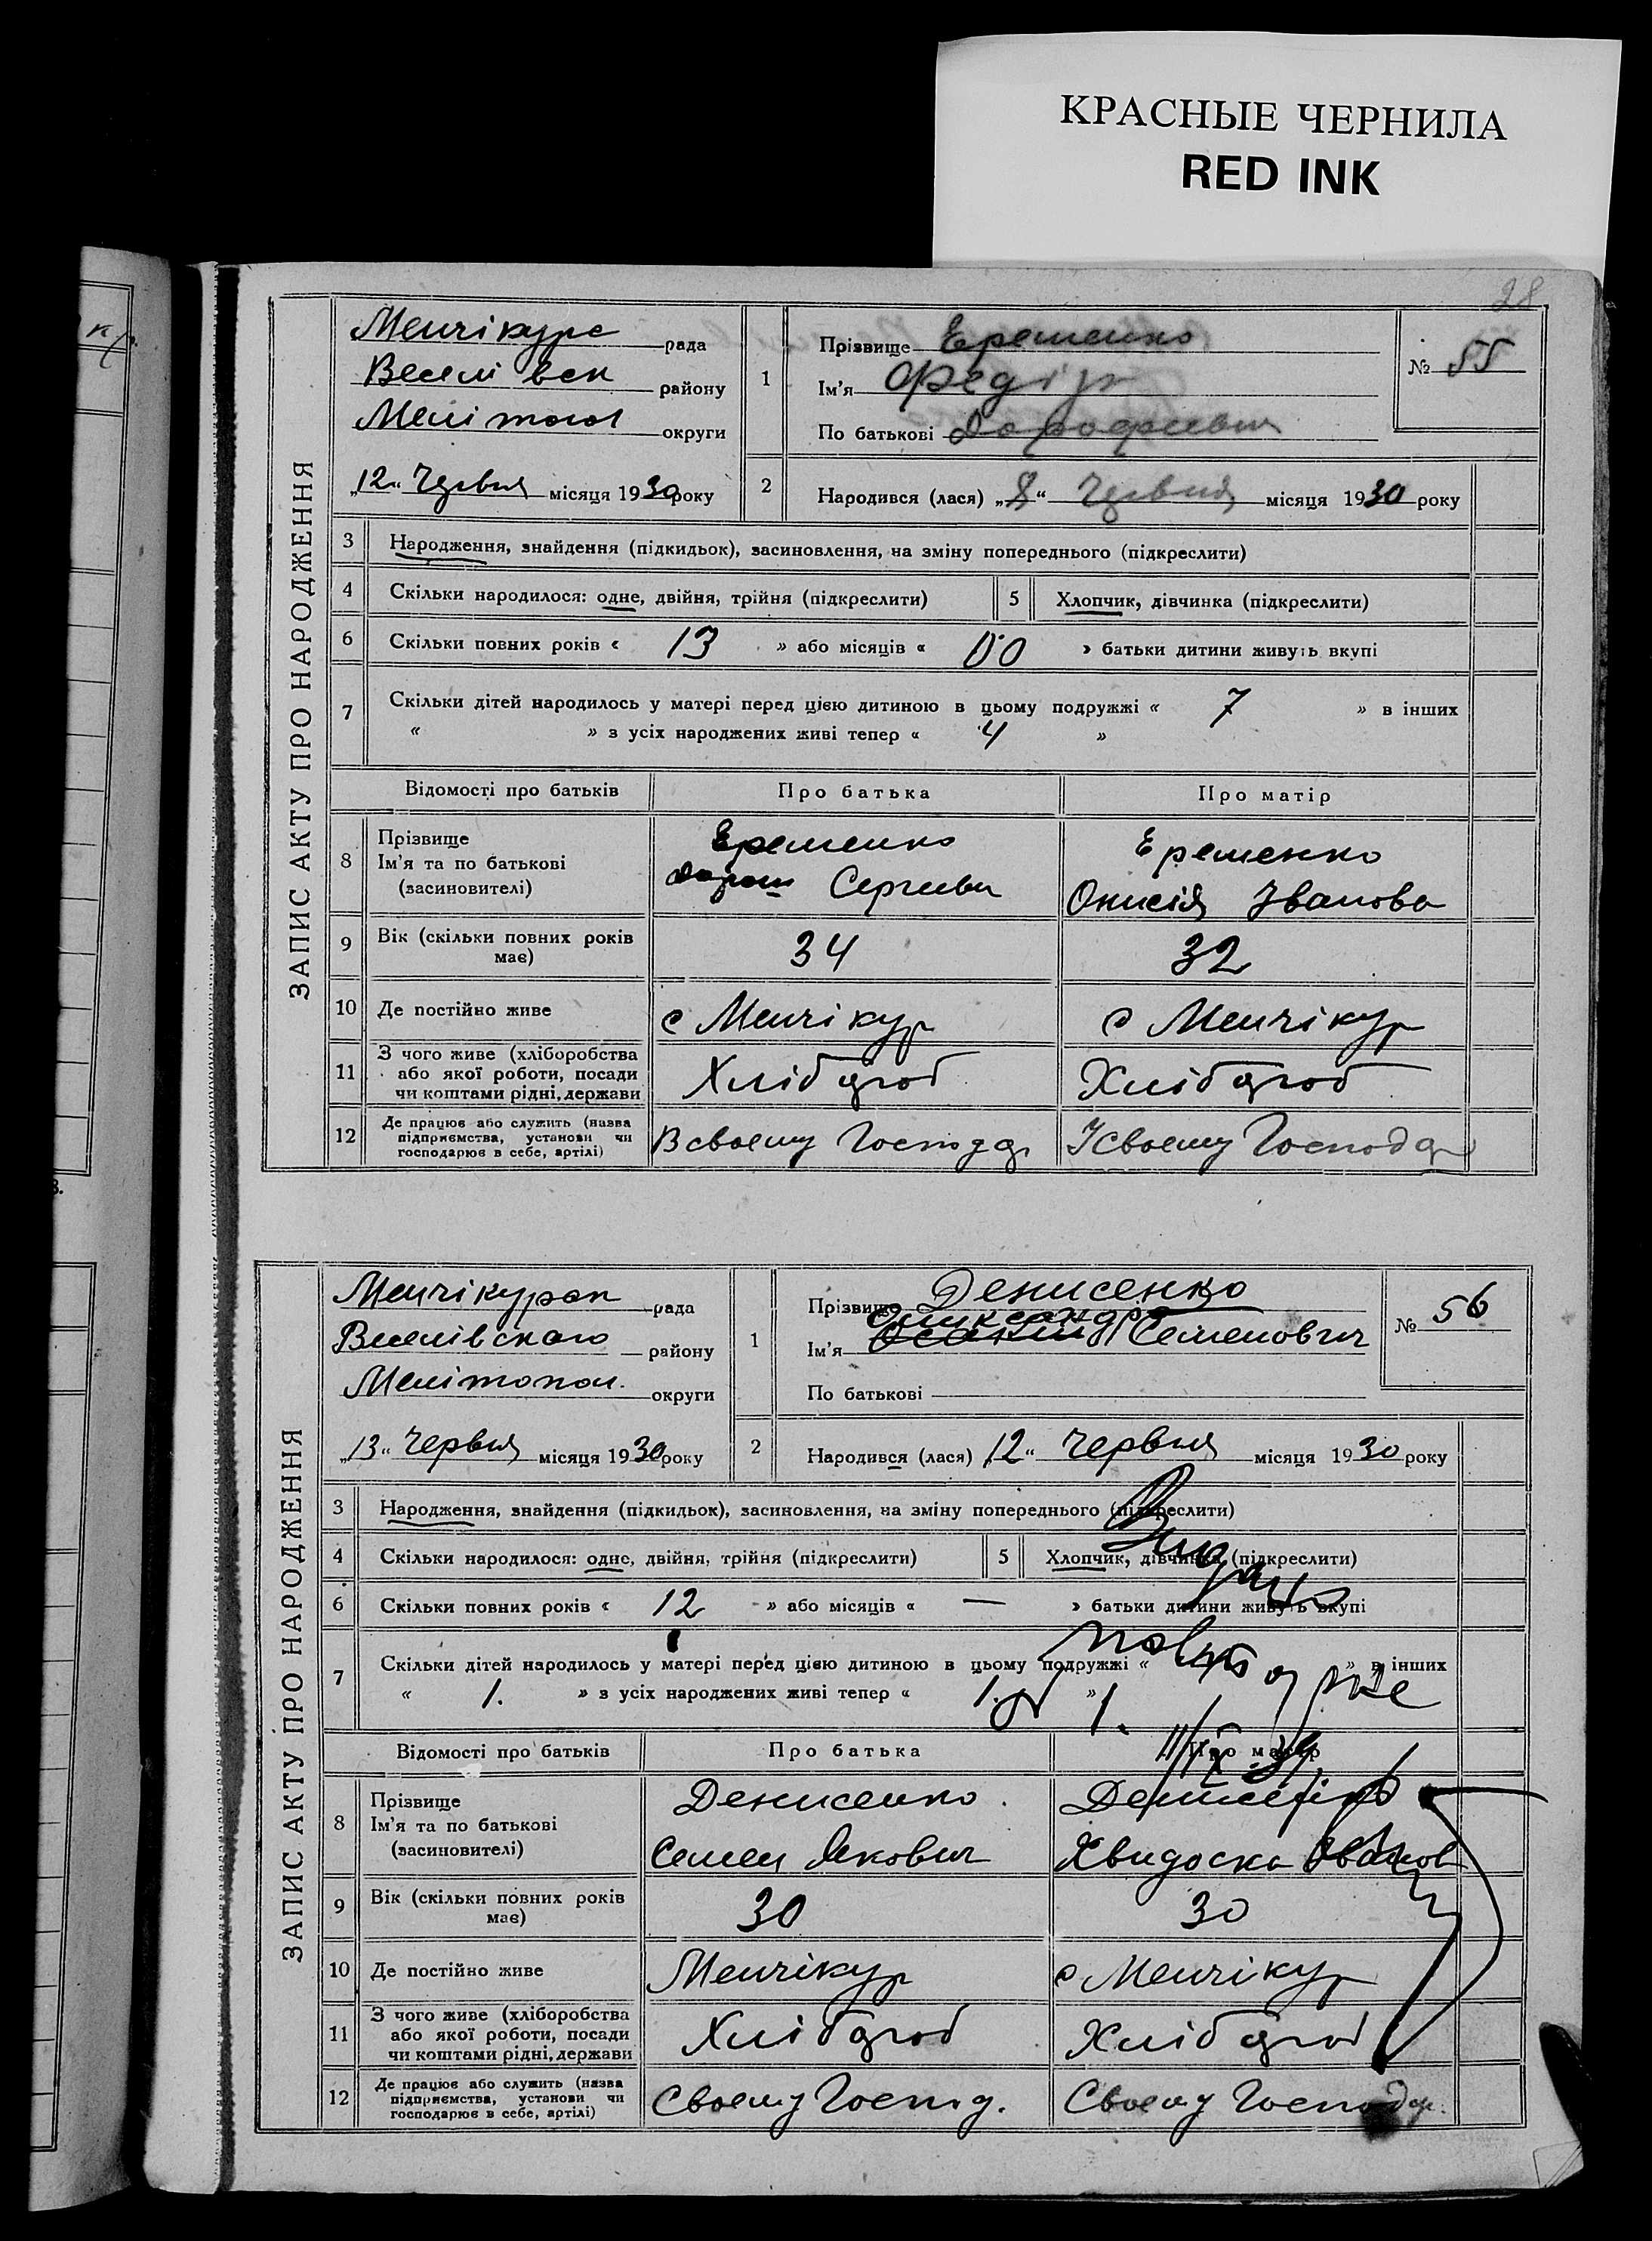 КРАСНЫЕ ЧЕРНИЛА
RED INK
28
ЗАПИС АКТУ ПРО НАРОДЖЕННЯ
Менчікурс рада
Веселівск району
Меліт округи
„12“ Червня місяця 1930 року
1
Прізвище Еременко
Ім'я Федір
По батькові
№ 55
2
Народився (лася) „8“ Червня місяця 1930 року
3 Народження, знайдення (підкидьок), засиновлення, на зміну попереднього (підкреслити)
4 Скільки народилося: одне, двійня, трійня (підкреслити) 5 Хлопчик, дівчинка (підкреслити)
6 Скільки повних років « 13 » або місяців « 00 » батьки дитини живуть вкупі
7 Скільки дітей народилось у матері перед цією дитиною в цьому подружжі « 7 » в інших
« » з усіх народжених живі тепер « 4 »
Відомості про батьків Про батька Про матір
8 Прізвище
Ім'я та по батькові
(засиновителі)
Еременко
Сергиевич
Еременко
Онисія Іванова
9 Вік (скільки повних років має) 34 32
10 Де постійно живе с Менчікур с Менчікур
11 З чого живе (хліборобства
або якої роботи, посади
чи коштами рідні, держави
Хлібороб Хлібороб
12 Де працює або служить (назва
підприємства, установи чи
господарює в себе, артілі)
В своему Господар У своему Господар
ЗАПИС АКТУ ПРО НАРОДЖЕННЯ
Менчікурск рада
Веселівского району
Мелітопол. округи
„13“ Червня місяця 1930 року
1
Прізвище Денисенко
Олександр
Ім'я Семенович
По батькові
№ 56
2
Народився (лася) „12“ Червня місяця 1930 року
3 Народження, знайдення (підкидьок), засиновлення, на зміну попереднього (підкреслити)
4 Скільки народилося: одне, двійня, трійня (підкреслити) 5 Хлопчик, дівчинка (підкреслити)
6 Скільки повних років « 12 » або місяців « — » батьки дитини живуть вкупі
7 Скільки дітей народилось у матері перед цією дитиною в цьому подружжі « » в інших
« 1. » з усіх народжених живі тепер « 1. »
Відомості про батьків Про батька Про матір
8 Прізвище
Ім'я та по батькові
(засиновителі)
Денисенко
Семен Якович
Денисенко
Хвидоска
9 Вік (скільки повних років має) 30 30
10 Де постійно живе Менчікур с Менчікур
11 З чого живе (хліборобства
або якої роботи, посади
чи коштами рідні, держави
Хлібороб Хлібороб
12 Де працює або служить (назва
підприємства, установи чи
господарює в себе, артілі)
Своему Господ. Своему Господар.